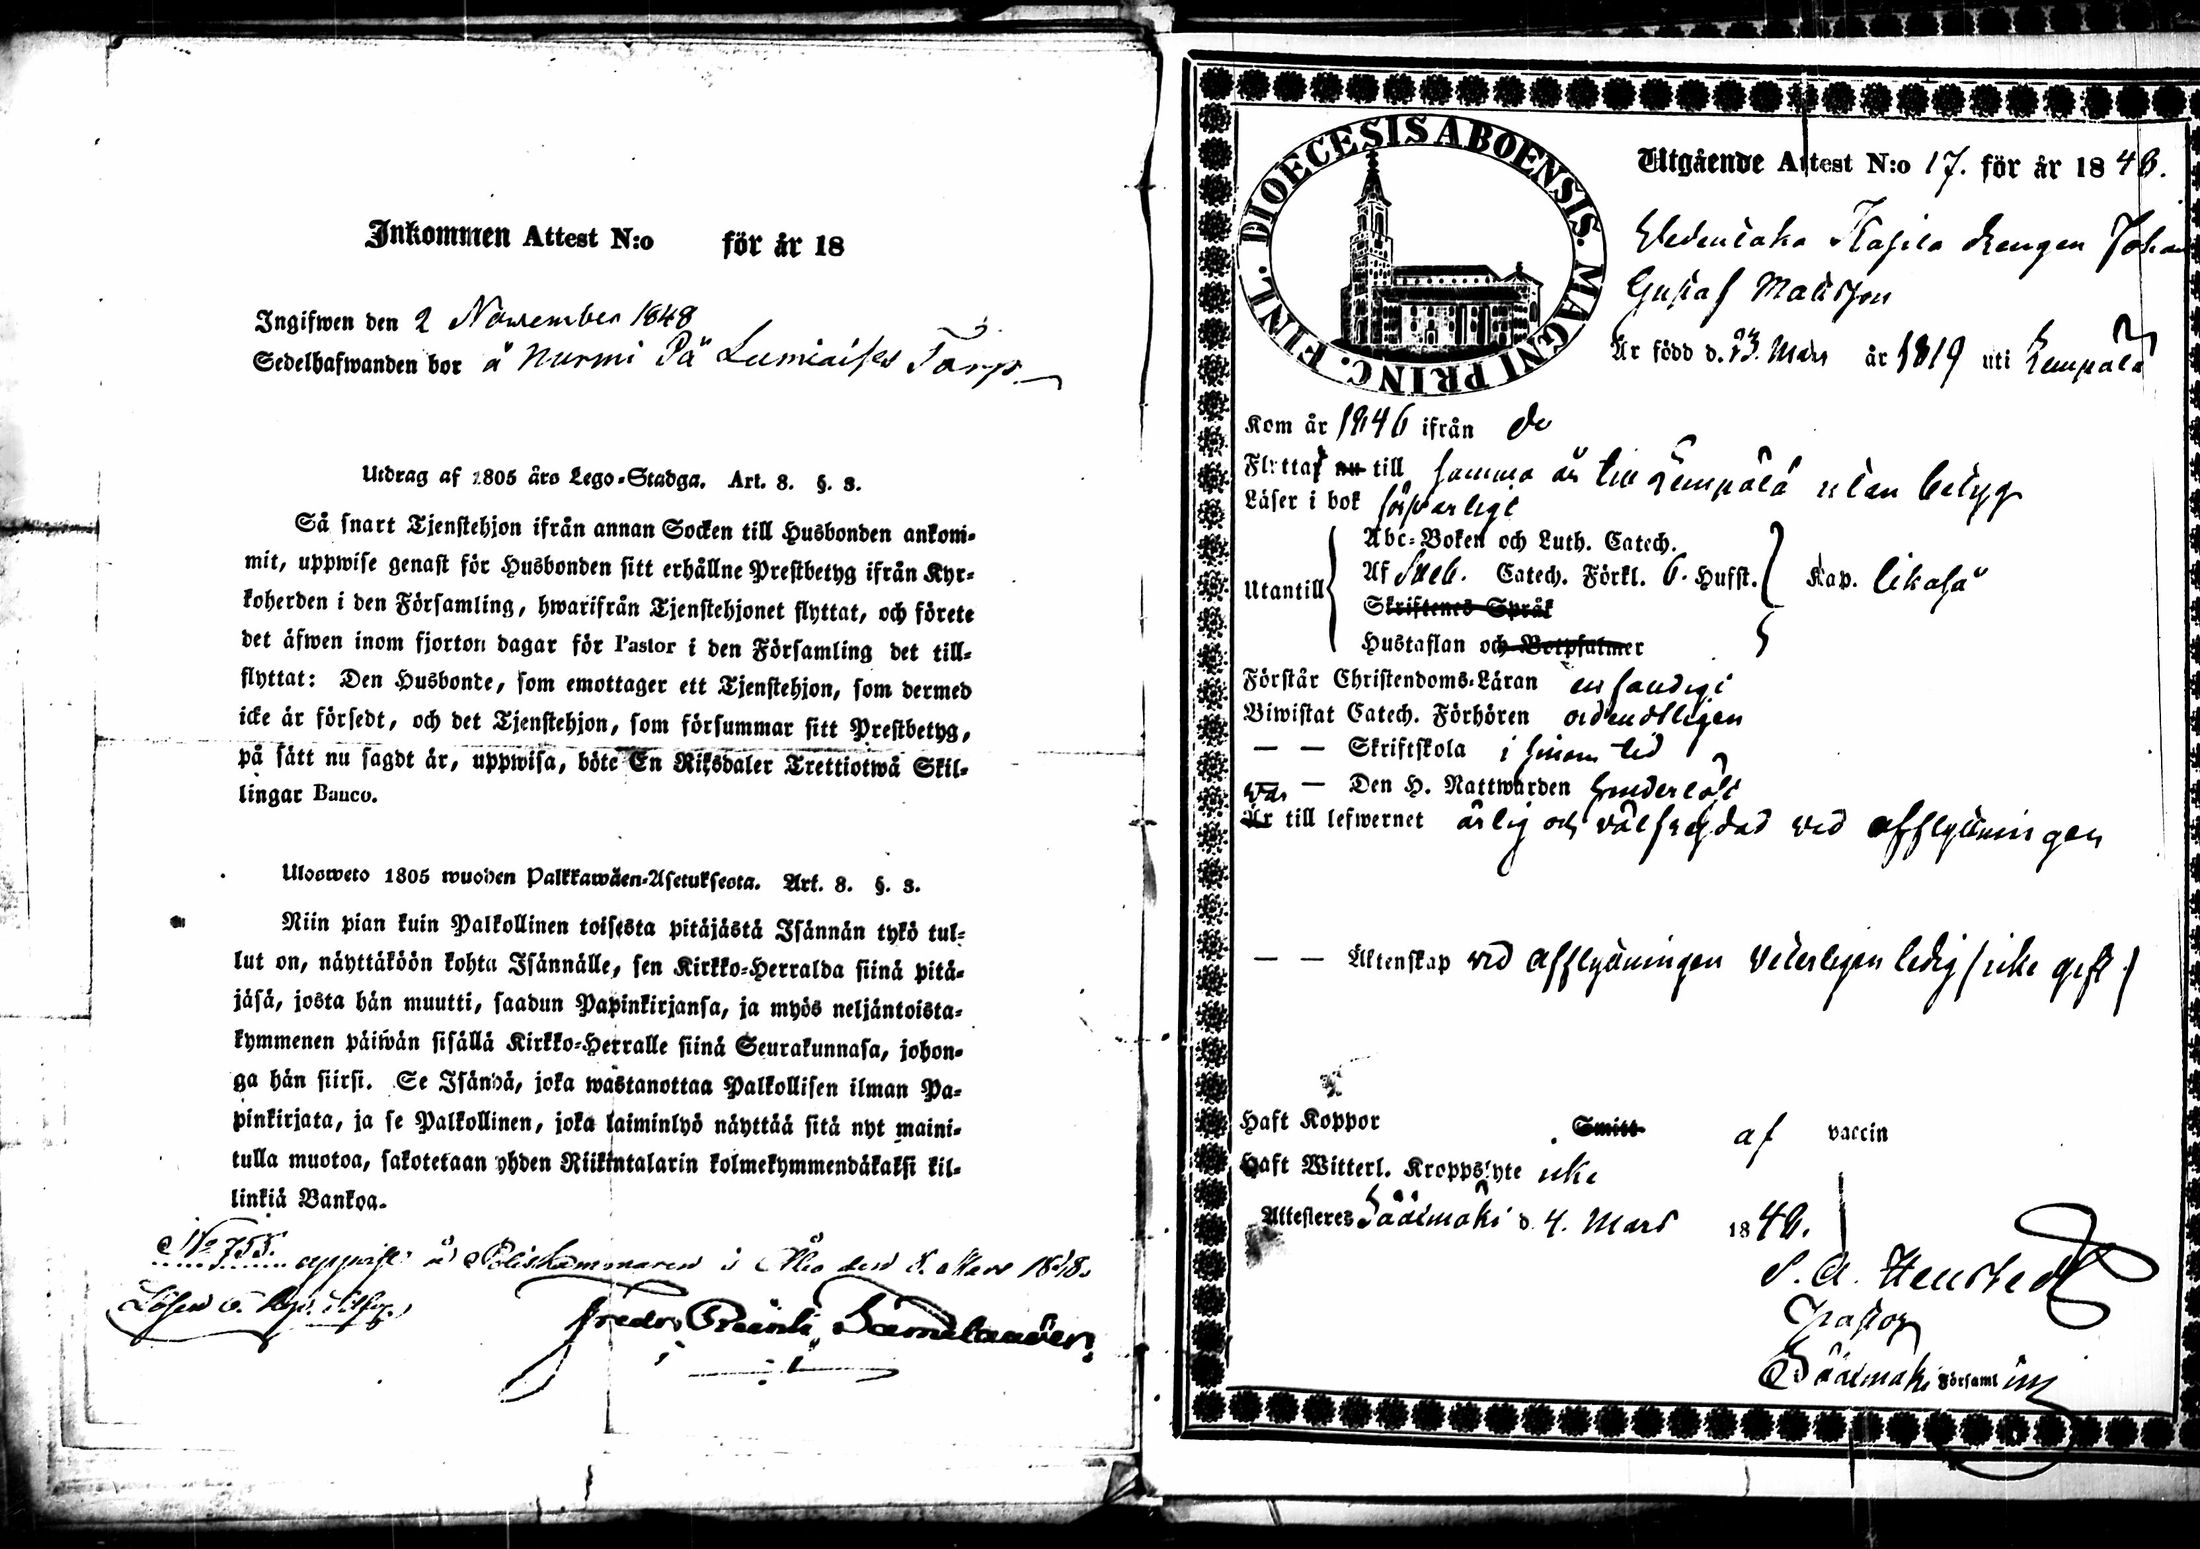 Inkommen Attest N:o för år 18
Ingifwen den 2 November 1848
Sedelhafwanden bor å Nurmi På Lumiaises Torp
Utdrag af 1805 års Lego-Stadga. Art. 8. §. 3.
Så snart Tjenstehjon ifrån annan Socken till Husbonden ankom-
mit, uppwise genast för Husbonden sitt erhållne Prestbetyg ifrån Kyr-
koherden i den Församling, hwarifrån Tjenstehjonet flyttat, och förete
det äfwen inom fjorton dagar för Pastor i den Församling det till-
flyttat: Den Husbonde, som emottager ett Tjenstehjon, som dermed
icke är försedt, och det Tjenstehjon, som försummar sitt Prestbetyg,
på sätt nu sagdt är, uppwisa, böte En Riksdaler Trettiotwå Skil-
lingar Banco.
Ulosweto 1805 wuoden Palkkawäen-Asetuksesta. Art. 8. §. 3.
Niin pian kuin Palkollinen toisesta pitäjästä Isännän tykö tul-
lut on, näyttäköön kohta Isännälle, sen Kirkko-Herralda siinä pitä-
jäsä, josta hän muutti, saadun Papinkirjansa, ja myös neljäntoista-
kymmenen päiwän sisällä Kirkko-Herralle siinä Seurakunnasa, johon-
ga hän siirsi. Se Isändä, joka wastanottaa Palkollisen ilman Pa-
pinkirjata, ja se Palkollinen, joka laiminlyö näyttää sitä nyt maini-
tulla muotoa, sakotetaan yhden Riikintalarin kolmekymmendäkaksi kil-
linkiä Bankoa.
N:o 755. uppvist å Poliskammaren i Åbo den 8. Mars 1848.
Fredr.
DIOECESIS ABOENSIS. MAGNI PRINC. FINL.
Utgående Attest N:o 17. för år 1848.
Drengen Johan
Gustaf Mattsson
Är född d. 23. Mars år 1819 uti Lempälä
Kom år 1846 ifrån do
Flyttat nu till samma år till Lempälä utan betyg
Läser i bok försvarligt
Abc-Boken och Luth. Catech.
Utantill Af Sveb. Catech. Förkl. 6. Hufst. Kap. likaså
Skriftenes Språk
Hustaflan och Botpsalmer
Förstår Christendoms-Läran enfaldigt
Biwistat Catech. Förhören ordentligen
— — Skriftskola i sinom tid
— — Den H. Nattwarden
var
Är till lefwernet ärlig och välfrejdad ved afflyttningen
— — Äktenskap ved afflyttningen veterligen ledig (icke gift)
Haft Koppor Smitt af vaccin
Haft Witterl. Kroppslyte icke
Attesteres Sääxmäki d. 4. Mars 1848.
Pastor
Sääxmäki Församl